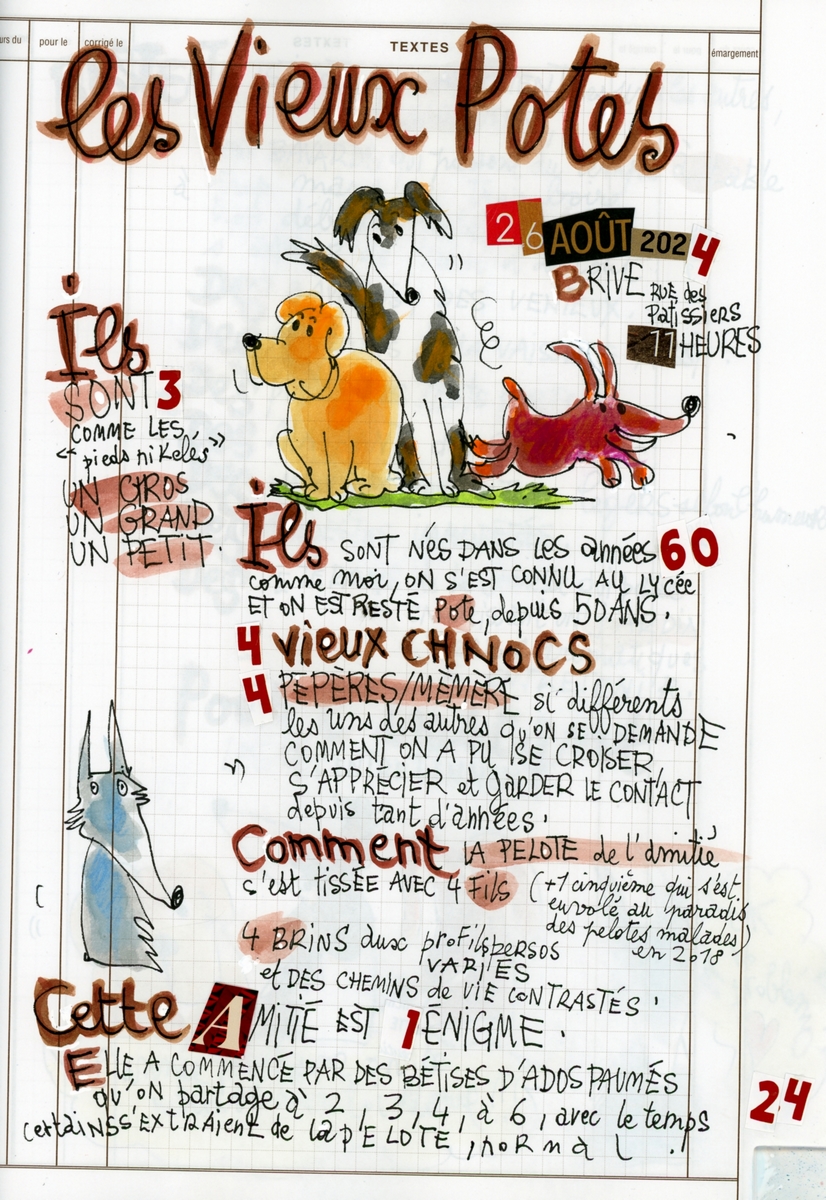 urs du
pour le
corrigé le
TEXTES
émargement
les Vieux Potes
26 AOÛT 2024
BRIVE RUE des
Patissiers
11 HEURES
Ils
SONT 3
COMME LES
"pieds nikelés"
UN GROS
UN GRAND
UN PETIT.
Ils SONT NÉS DANS LES années 60
comme moi, ON S'EST CONNU AU LYcée
ET ON EST RESTÉ Pote, depuis 50 ANS.
4 vieux CHNOCS
4 PÉPÈRES/MÉMÈRE si différents
les uns des autres qu'ON SE DEMANDE
COMMENT ON A PU SE CROISER,
S'APPRÉCIER et GARDER LE CONTACT
depuis tant d'années.
Comment LA PELOTE de l'amitié
s'est TISSÉE AVEC 4 Fils (+1 cinquième qui s'est
envolé au paradis
des pelotes malades)
en 2018
4 BRINS aux profils persos
VARIÉS
et DES CHEMINS de VIE CONTRASTÉS.
Cette AMITIÉ EST 1 ÉNIGME.
ELLE A COMMENCÉ PAR DES BÉTISES D'ADOS PAUMÉS
QU'ON partage à 2, 3, 4, à 6, avec le temps
certaiNS S'EXTRAient de la pELOTE, normal.
24